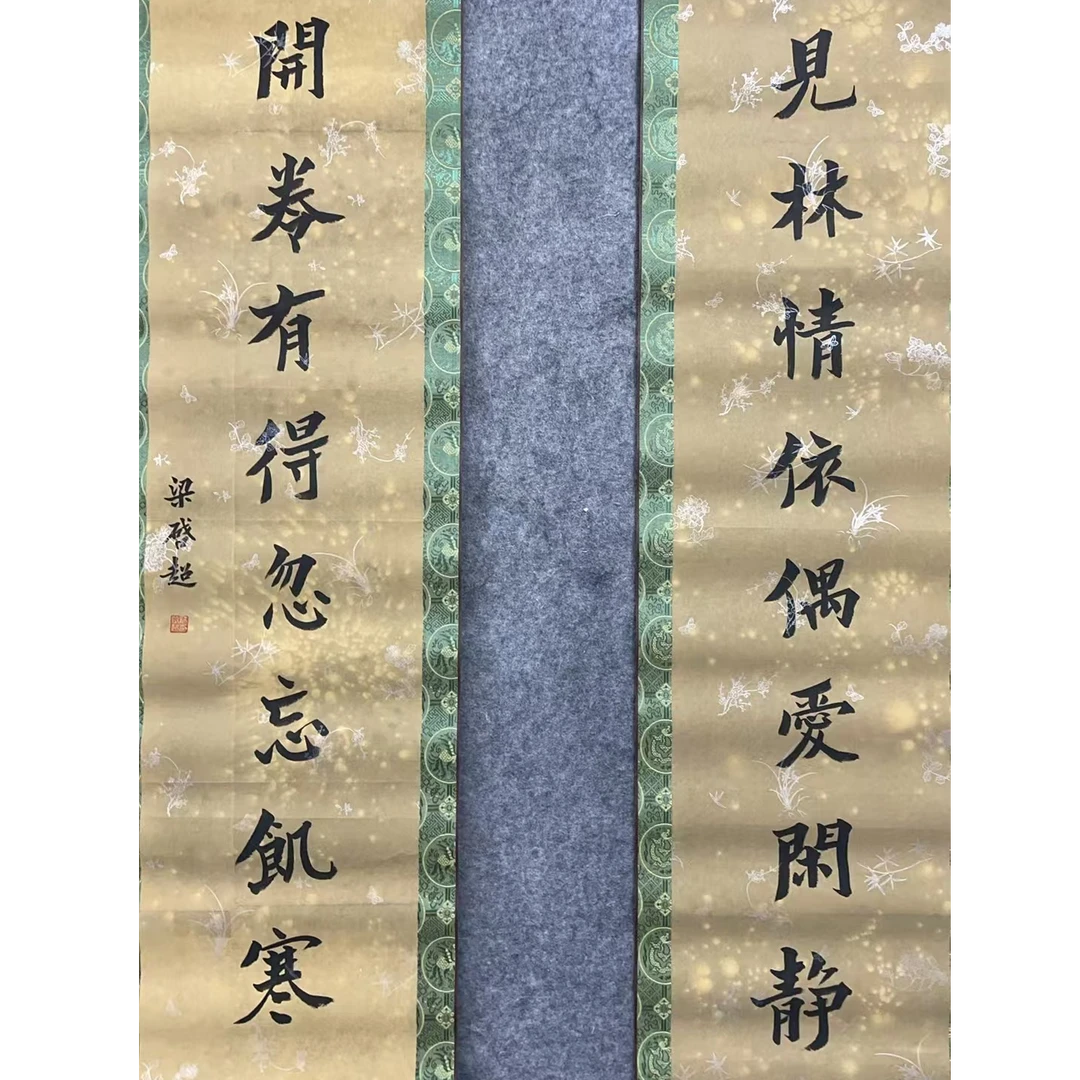 見林情依偶愛閑静
開券有得忽忘飢寒
梁啓超